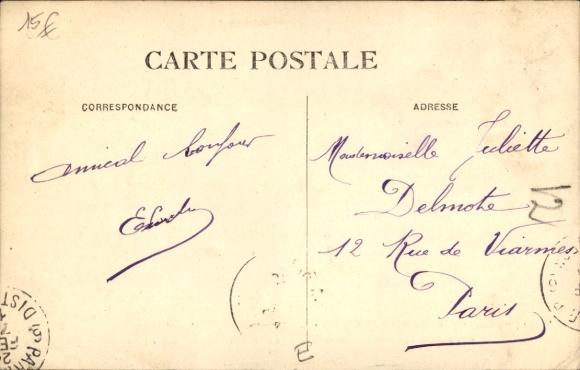 CARTE POSTALE
CORRESPONDANCE
amical bonjour
ADRESSE
Mademoiselle Juliette
Delmote
12 Rue de Viarmes
Paris
12
E
DIST